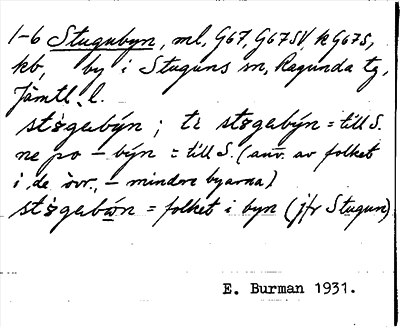 1-6 Stugubyn, ml, G67, G67SV, k G67S,
kb, by i Stuguns sn, Ragunda tg,
Jämtl. l.
støgabýn; te støgabýn = till S.
ne po - býn = till S. (anv. av folket
i de övr. - mindre byarna)
støgabøn = folket i byn (jfr Stugun)
E. Burman 1931.